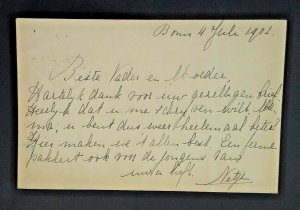 Bonn 4 Juli 1902.
Beste Vader en Moeder,
Hartelijk dank voor uw gezelligen brief
Heerlijk dat u me schrijven wilt,
ma, u bent dus weer heelemaal beter!
Hier maken we 't allen best. Een ferme
pakkert ook voor de jongens van
uw